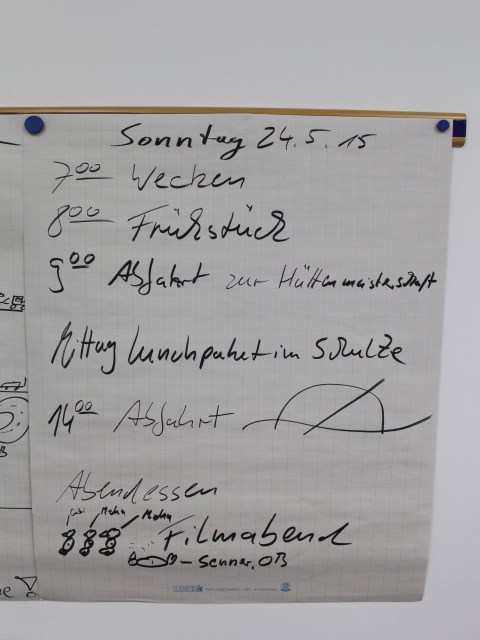 Sonntag 24.5.15
7⁰⁰ Wecken
8⁰⁰ Frühstück
9⁰⁰ Abfahrt zur Hüttenmeisterschaft
Mittag Lunchpaket im Schulze
14⁰⁰ Abfahrt
Abendessen
Mohn Mohn
Filmabend
- Senner, OB